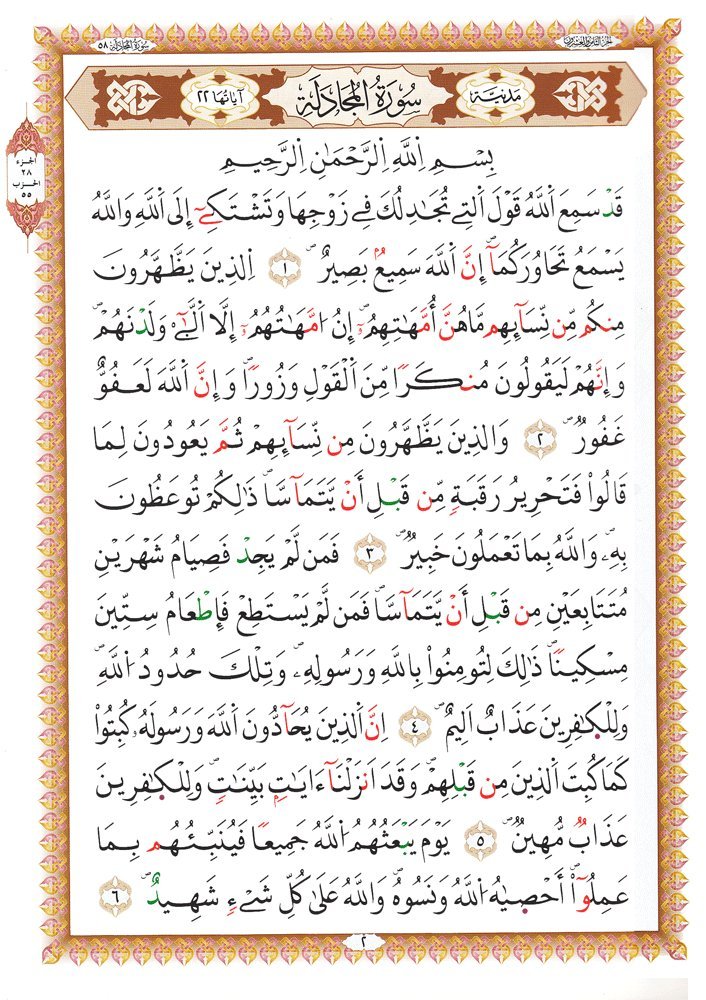 الجزء الثامن والعشرون
سورة المجادلة ٥٨
مَدنيّة
سُورَةُ المُجَادلَة
آيَاتُهَا ٢٢
الجزء
٢٨
الحزب
٥٥
بِسْمِ اِللَّهِ اِلرَّحْمَٰنِ اِلرَّحِيمِ
قَدْ سَمِعَ اَللَّهُ قَوْلَ اَلتِے تُجَٰدِلُكَ فِے زَوْجِهَا وَتَشْتَكِےٓ إِلَى اَللَّهِ وَاللَّهُ
يَسْمَعُ تَحَاوُرَكُمَآ إِنَّ اَللَّهَ سَمِيعُۢ بَصِيرٌ ١ اِلذِينَ يَظَّهَّرُونَ
مِنكُم مِّن نِّسَآئِهِم مَّا هُنَّ أُمَّهَٰتِهِمُۥٓ إِنُ امَّهَٰتُهُمُۥٓ إِلَّا اَلَّٰٓےْ وَلَدْنَهُمْ
وَإِنَّهُمْ لَيَقُولُونَ مُنكَرًا مِّنَ اَلْقَوْلِ وَزُورًا وَإِنَّ اَللَّهَ لَعَفُوٌّ
غَفُورٌ ٢ وَالذِينَ يَظَّهَّرُونَ مِن نِّسَآئِهِمْ ثُمَّ يَعُودُونَ لِمَا
قَالُواْ فَتَحْرِيرُ رَقَبَةٍ مِّن قَبْلِ أَنْ يَّتَمَآسَّا ذَٰلِكُمْ تُوعَظُونَ
بِهِۦ وَاللَّهُ بِمَا تَعْمَلُونَ خَبِيرٌ ٣ فَمَن لَّمْ يَجِدْ فَصِيَامُ شَهْرَيْنِ
مُتَتَابِعَيْنِ مِن قَبْلِ أَنْ يَّتَمَآسَّا فَمَن لَّمْ يَسْتَطِعْ فَإِطْعَامُ سِتِّينَ
مِسْكِينًا ذَٰلِكَ لِتُومِنُواْ بِاللَّهِ وَرَسُولِهِۦ وَتِلْكَ حُدُودُ اُللَّهِ
وَلِلْكٰ۪فِرِينَ عَذَابٌ اَلِيمٌ ٤ اِنَّ اَلذِينَ يُحَآدُّونَ اَللَّهَ وَرَسُولَهُۥ كُبِتُواْ
كَمَا كُبِتَ اَلذِينَ مِن قَبْلِهِمْ وَقَدَ اَنزَلْنَآ ءَايَٰتٍۢ بَيِّنَٰتٍ وَلِلْكٰ۪فِرِينَ
عَذَابٌ مُّهِينٌ ٥ يَوْمَ يَبْعَثُهُمُ اُللَّهُ جَمِيعًا فَيُنَبِّئُهُم بِمَا
عَمِلُوٓاْ أَحْص۪يٰهُ اُللَّهُ وَنَسُوهُ وَاللَّهُ عَلَىٰ كُلِّ شَےْءٍ شَهِيدٌ ٦
٢